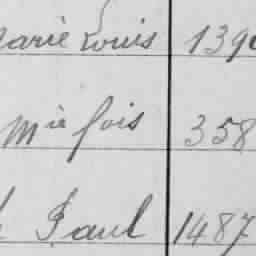 Marie Louis 1390
Mie fois 358
Paul 1487